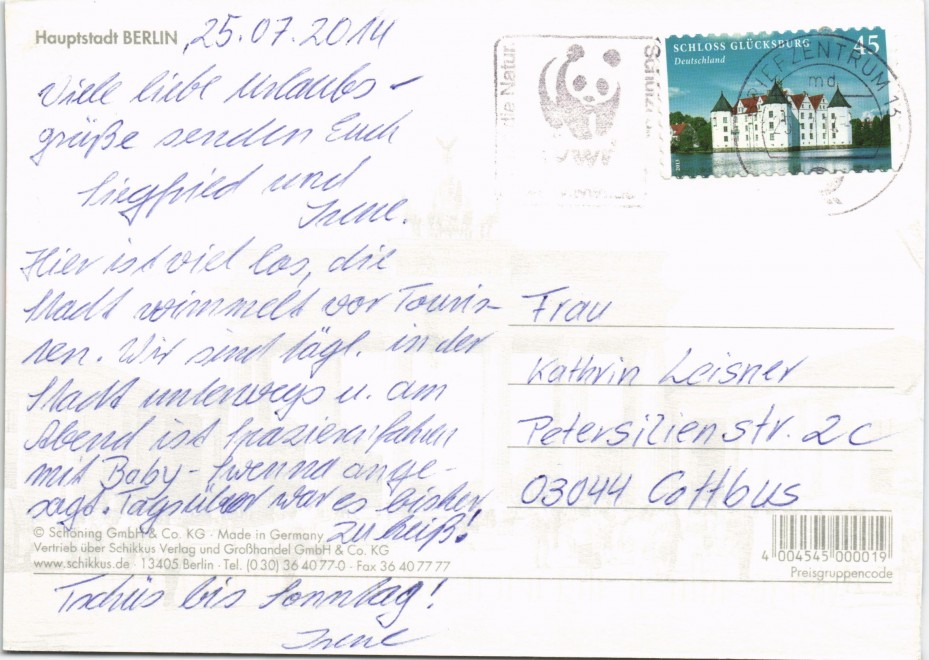 Hauptstadt BERLIN, 25.07.2014
Viele liebe Urlaubs-
grüße senden Euch
Siegfried und
Irene.
Hier ist viel los, die
Stadt wimmelt vor Touris-
ten. Wir sind tägl. in der
Stadt unterwegs u. am
Abend ist spazierenfahren
mit Baby- ange-
sagt. Tagsüber war es bisher
zu heiß!
© Schöning GmbH & Co. KG · Made in Germany
Vertrieb über Schikkus Verlag und Großhandel GmbH & Co. KG
www.schikkus.de · 13405 Berlin · Tel. (0 30) 36 40 77-0 · Fax 36 40 77 77
Tschüs bis Sonntag!
Irene
die Natur.
Schützt
SCHLOSS GLÜCKSBURG 45
Deutschland
2013
BRIEFZENTRUM 13
md
Frau
Kathrin Leisner
Petersilienstr. 2c
03044 Cottbus
4 004545 000019
Preisgruppencode